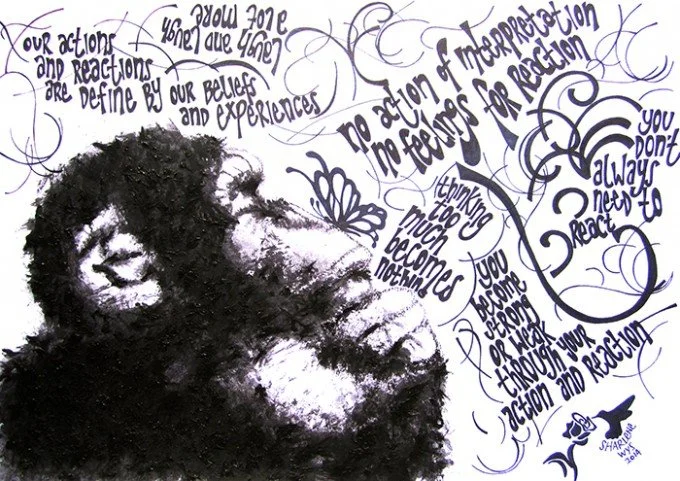 our actions
and reactions
are define by our beliefs
and experiences
laugh and laugh
a lot more
no action of interpretation
no feelings for reaction
you
don't
always
need to
react
thinking
too
much
becomes
nothing
you
become
strong
or weak
through your
action and reaction
2014